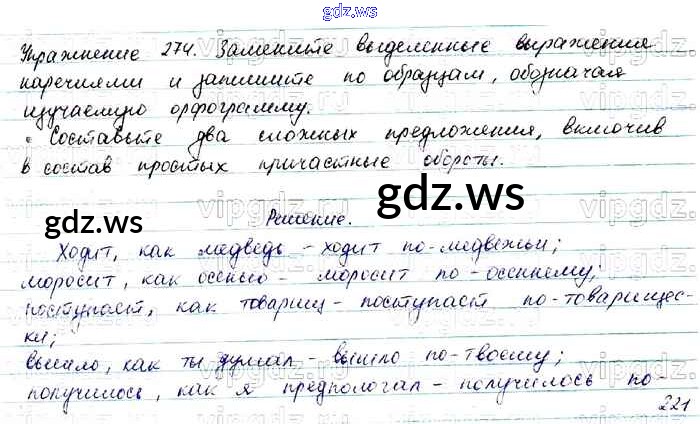 gdz.ws
Упражнение 274. Замените выделенные выражения
наречиями и запишите по образцам, обозначая
изучаемую орфограмму.
• Составьте два сложных предложения, включив
в состав простых причастные обороты.
gdz.ws
gdz.ws
Решение.
Ходит, как медведь - ходит по-медвежьи;
моросит, как осенью - моросит по-осеннему;
поступает, как товарищ - поступает по-товарищес-
ки;
вышло, как ты думал - вышло по-твоему;
получилось, как я предпологал - получилось по-
221